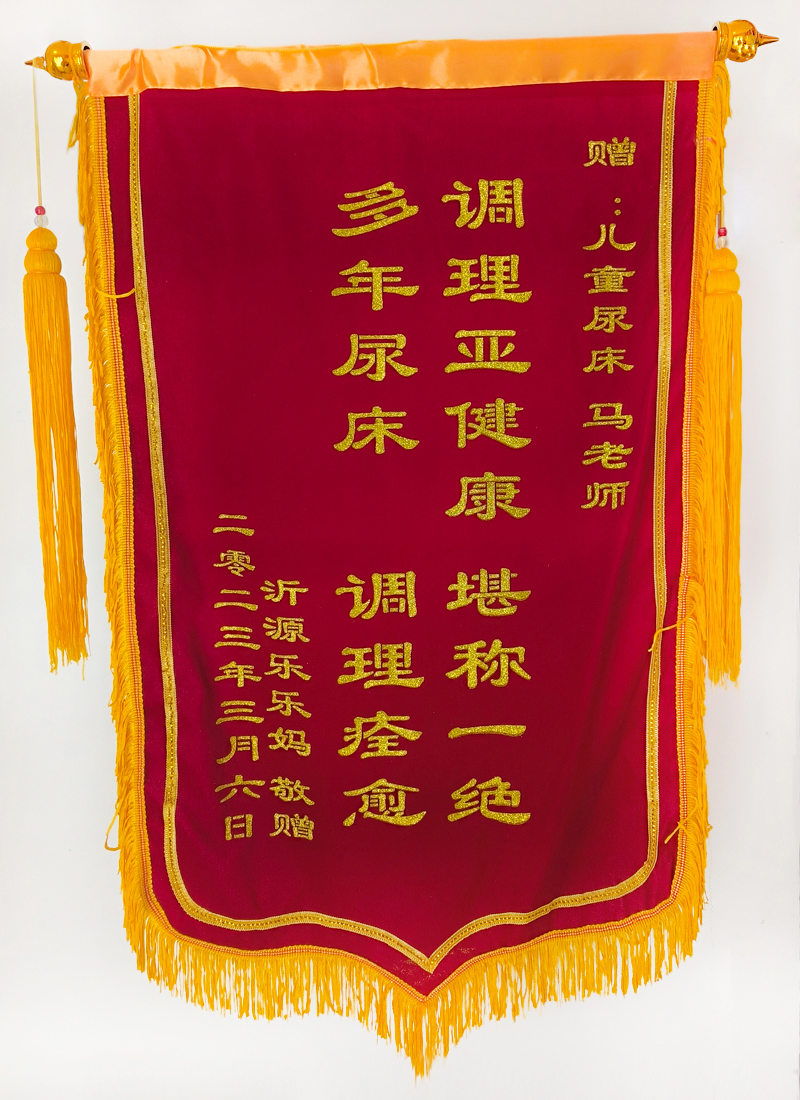 赠：儿童尿床 马老师
调理亚健康 堪称一绝
多年尿床 调理痊愈
沂源乐乐妈 敬赠
二零二三年三月六日